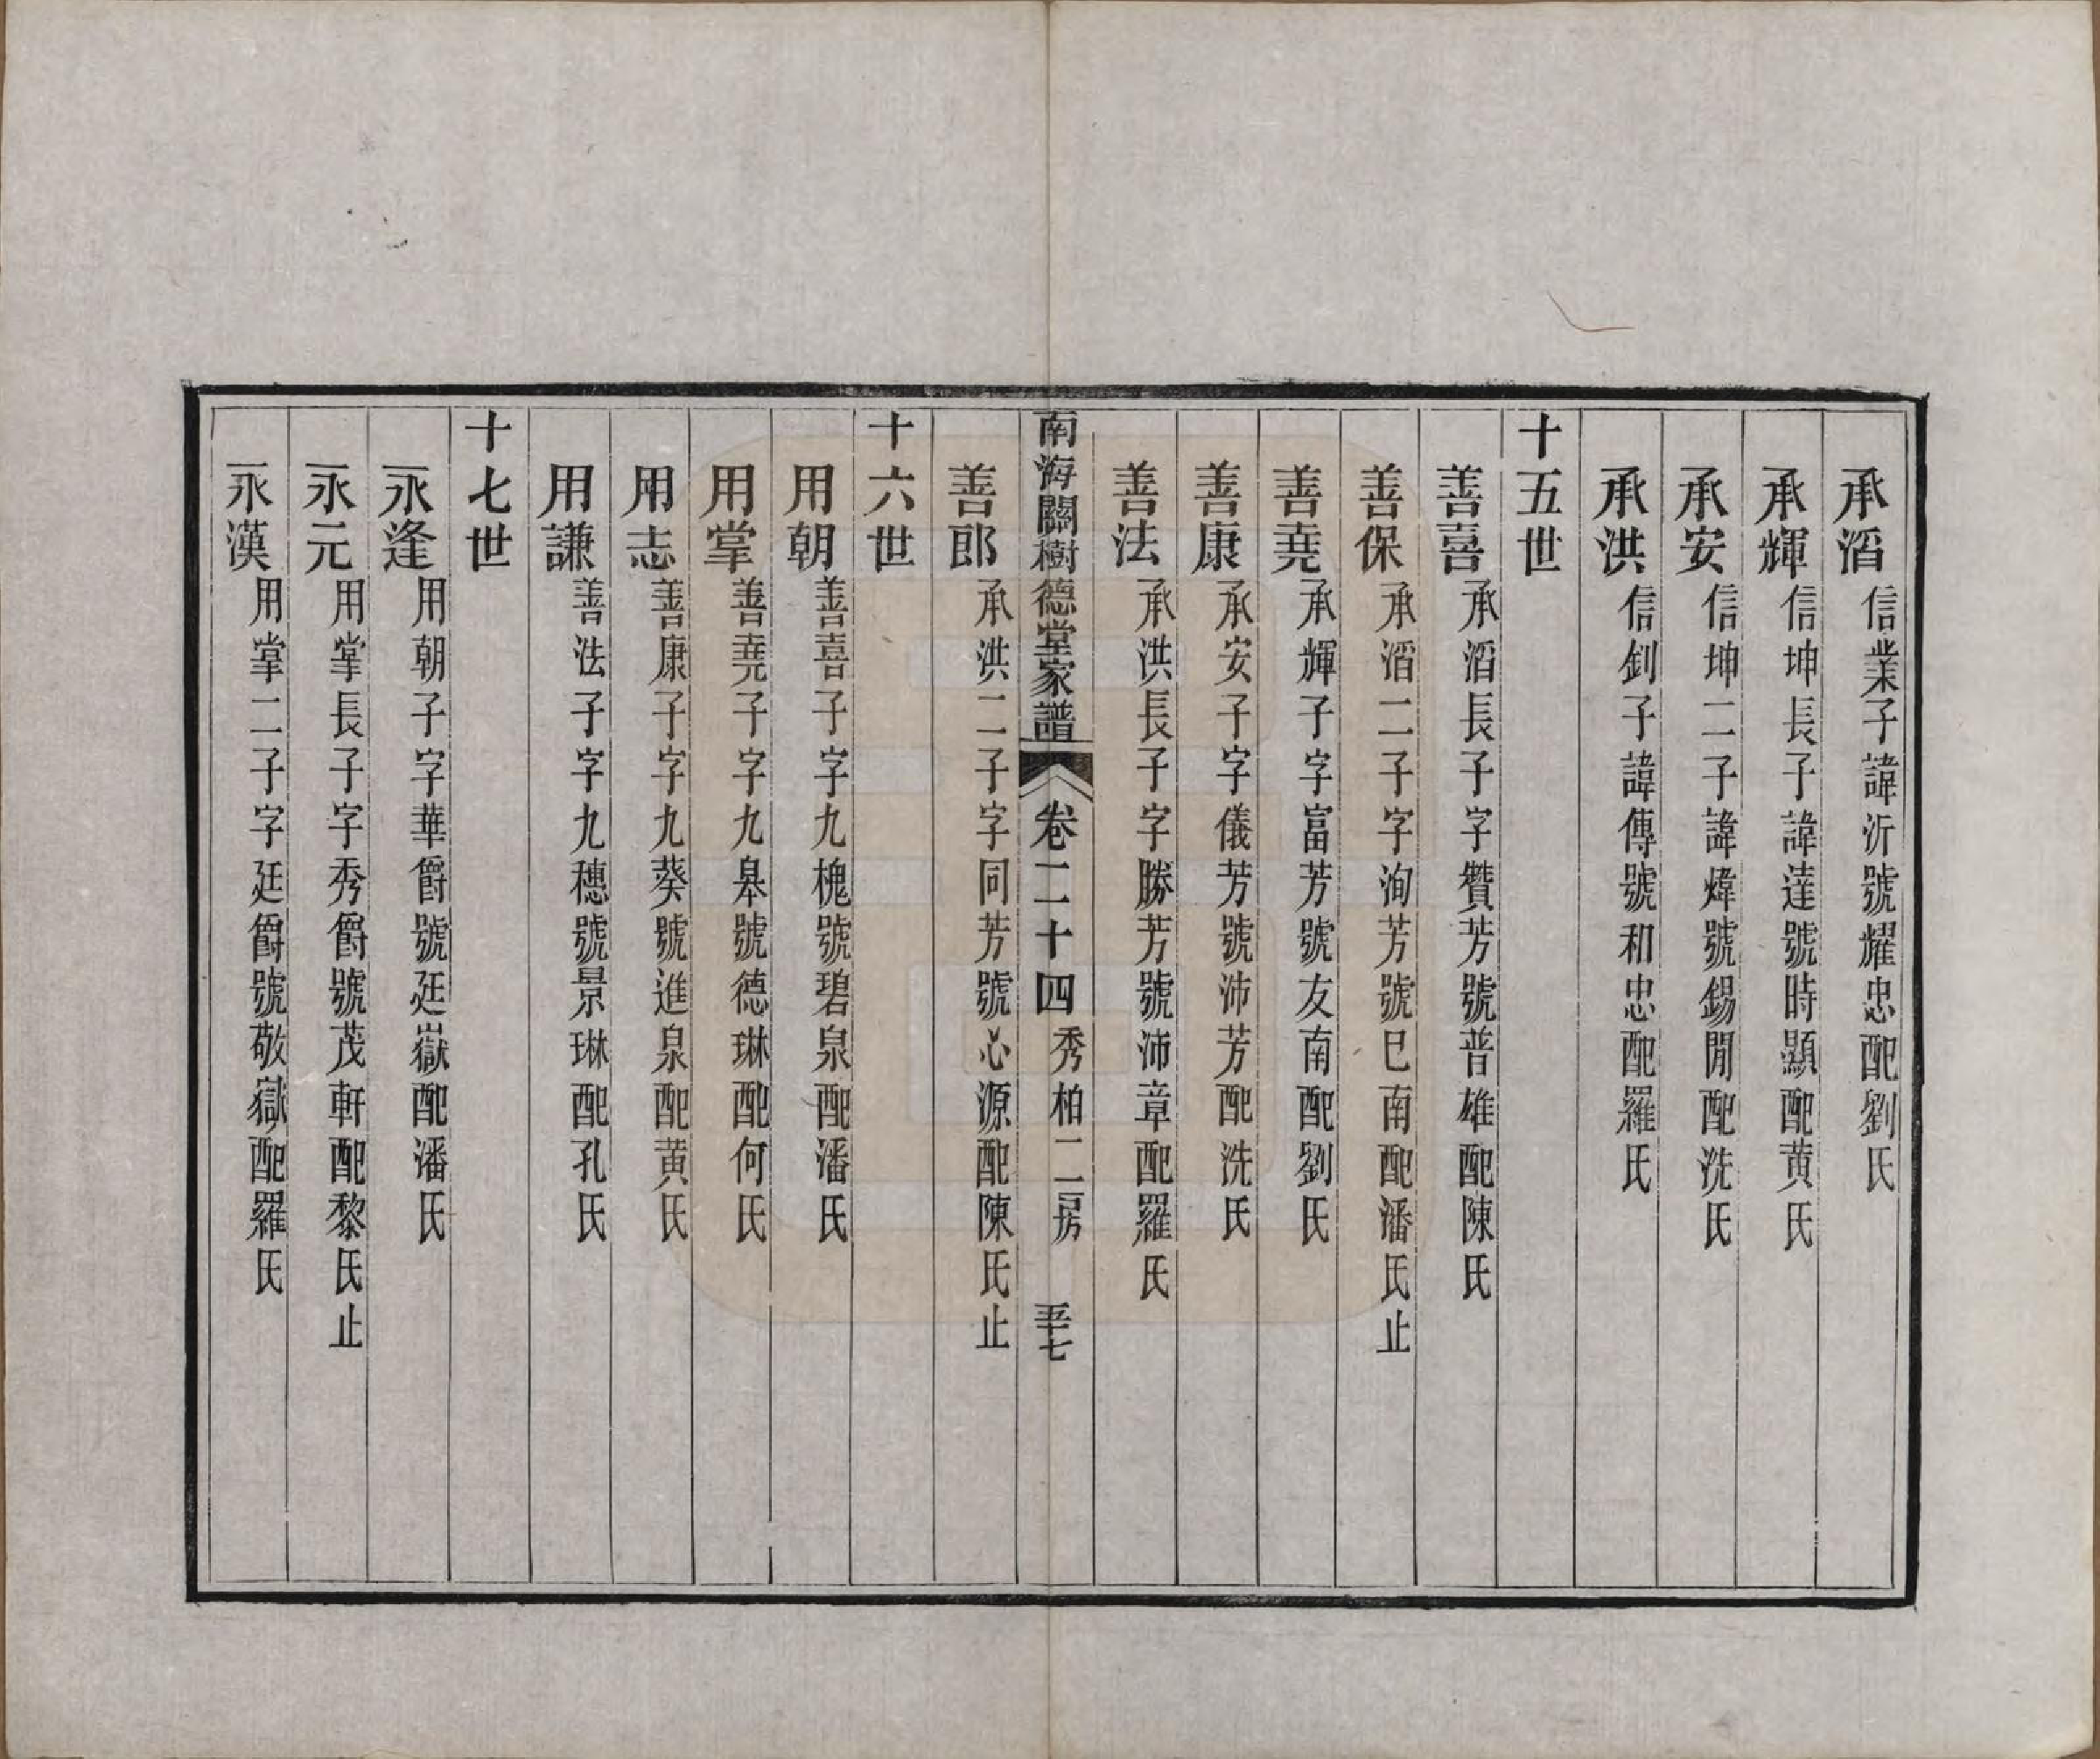 承滔信業子諱沂號耀忠配劉氏
承輝信坤長子諱達號時顯配黃氏
承安信坤二子諱煒號錫閒配洗氏
承洪信釗子諱傳號和忠配羅氏
十五世
善喜承滔長子字贊芳號普雄配陳氏
善保承滔二子字洵芳號巳南配潘氏止
善堯承輝子字富芳號友南配劉氏
善康承安子字儀芳號沛芳配洗氏
善法承洪長子字勝芳號沛章配羅氏
南海關樹德堂家譜 卷二十四 秀柏二房 五十七
善郎承洪二子字同芳號心源配陳氏止
十六世
用朝善喜子字九槐號碧泉配潘氏
用掌善堯子字九皋號德琳配何氏
用志善康子字九葵號進泉配黃氏
用謙善法子字九穗號景琳配孔氏
十七世
永逢用朝子字華爵號廷嶽配潘氏
永元用掌長子字秀爵號茂軒配黎氏止
永漢用掌二子字廷爵號敬嶽配羅氏